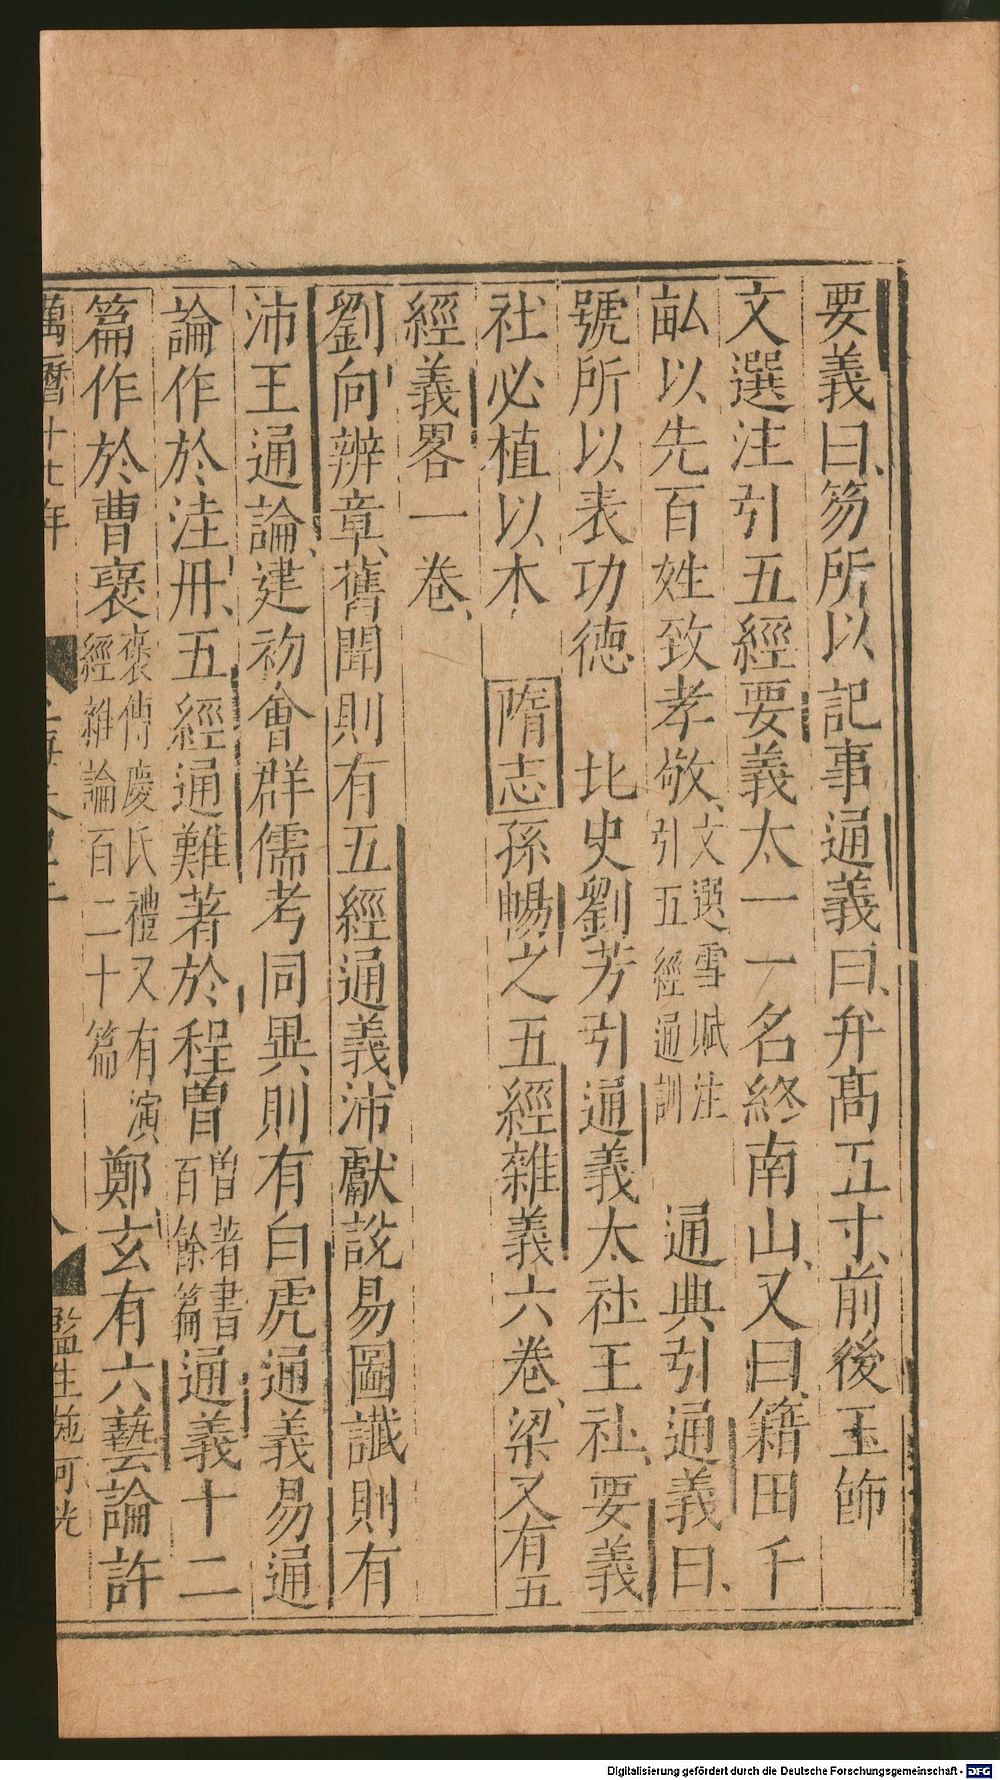 要義曰笏所以記事通義曰弁高五寸前後玉飾
文選注引五經要義太一一名終南山又曰籍田千
畝以先百姓致孝敬文選雪賦注引五經通訓 通典引通義曰
號所以表功德 北史劉芳引通義太社王社要義
社必植以木 隋志孫暢之五經雜義六卷梁又有五
經義畧一卷
劉向辨章舊聞則有五經通義沛獻說易圖讖則有
沛王通論建初會群儒考同異則有白虎通義易通
論作於洼丹五經通難著於程曾曾著書百餘篇通義十二
篇作於曹褒褒傳慶氏禮又有演經雜論百二十篇鄭玄有六藝論許
萬曆十七年
監生施可光
Digitalisierung gefördert durch die Deutsche Forschungsgemeinschaft - DFG